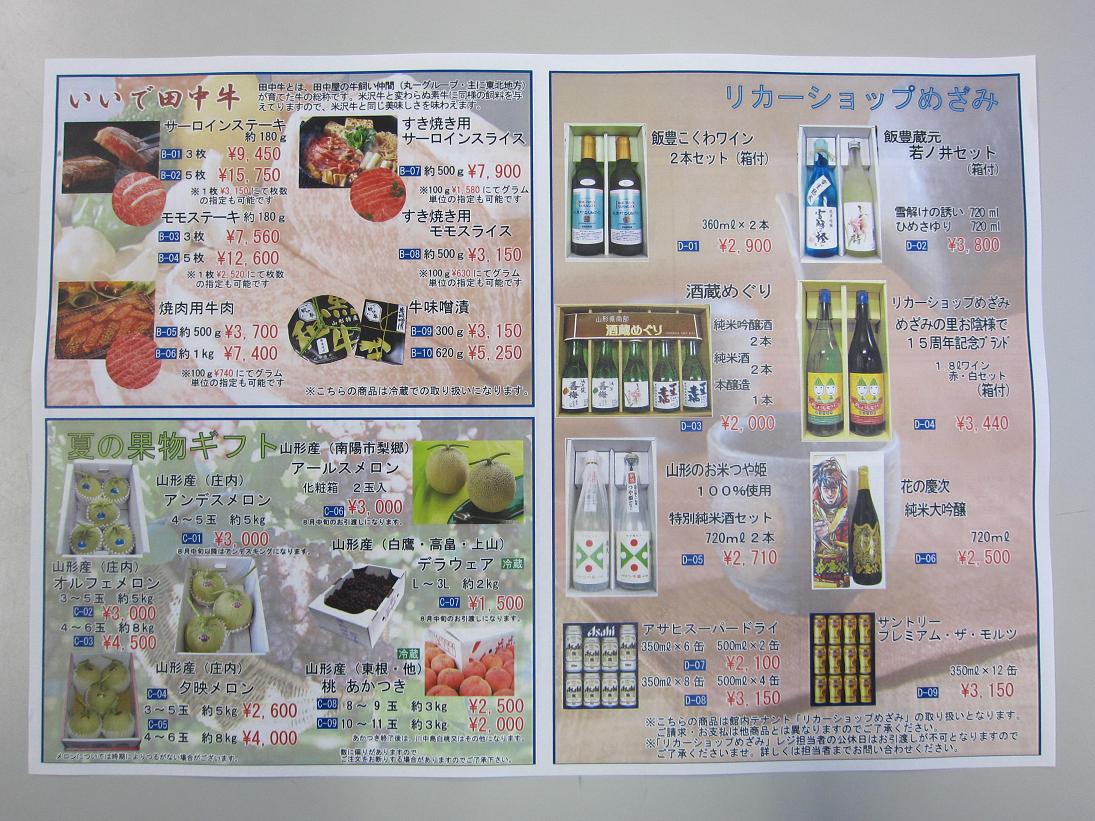 いいで田中牛
田中牛とは、田中屋の牛飼い仲間（丸一グループ・主に東北地方）
が育てた牛の総称です。米沢牛と変わらぬ素牛に同様の飼料を与
えてりますので、米沢牛と同じ美味しさを味わえます。
サーロインステーキ
約180g
B-01 3枚 ¥9,450
B-02 5枚 ¥15,750
※1枚¥3,150にて枚数
の指定も可能です
モモステーキ 約180g
B-03 3枚 ¥7,560
B-04 5枚 ¥12,600
※1枚¥2,520にて枚数
の指定も可能です
焼肉用牛肉
B-05 約500g ¥3,700
B-06 約1kg ¥7,400
※100g¥740にてグラム
単位の指定も可能です
すき焼き用
サーロインスライス
B-07 約500g ¥7,900
※100g¥1,580にてグラム
単位の指定も可能です
すき焼き用
モモスライス
B-08 約500g ¥3,150
※100g¥630にてグラム
単位の指定も可能です
牛味噌漬
B-09 300g ¥3,150
B-10 620g ¥5,250
※こちらの商品は冷蔵での取り扱いになります。
夏の果物ギフト
山形産（庄内）
アンデスメロン
4～5玉 約5kg
C-01 ¥3,000
8月中旬以降はアンデスキングになります。
山形産（庄内）
オルフェメロン
3～5玉 約5kg
C-02 ¥3,000
4～6玉 約8kg
C-03 ¥4,500
山形産（庄内）
夕映メロン
C-04
3～5玉 約5kg ¥2,600
C-05
4～6玉 約8kg ¥4,000
メロンについては時期によりつるがない場合がございます。
山形産（南陽市梨郷）
アールスメロン
化粧箱 2玉入
C-06 ¥3,000
8月中旬のお引渡しになります。
山形産（白鷹・高畠・上山）
デラウェア 冷蔵
L～3L 約2kg
C-07 ¥1,500
8月中旬のお引渡しになります。
冷蔵
山形産（東根・他）
桃 あかつき
C-08 8～9玉 約3kg ¥2,500
C-09 10～11玉 約3kg ¥2,000
あかつき終了後は、川中島白桃又はその他になります。
数に限りがありますので
ご注文をお断りする場合がありますのでご了承下さい。
リカーショップめざみ
飯豊こくわワイン
2本セット（箱付）
360ml×2本
D-01 ¥2,900
飯豊蔵元
若ノ井セット
（箱付）
雪解けの誘い 720ml
ひめさゆり 720ml
D-02 ¥3,800
酒蔵めぐり
山形県南部
酒蔵めぐり
純米吟醸酒
2本
純米酒
2本
本醸造
1本
D-03 ¥2,000
リカーショップめざみ
めざみの里お陰様で
15周年記念ブランド
1.8lワイン
赤・白セット
（箱付）
D-04 ¥3,440
山形のお米つや姫
100%使用
特別純米酒セット
720ml2本
D-05 ¥2,710
花の慶次
純米大吟醸
720ml
D-06 ¥2,500
Asahi
アサヒスーパードライ
350ml×6缶 500ml×2缶
D-07 ¥2,100
350ml×8缶 500ml×4缶
D-08 ¥3,150
サントリー
プレミアム・ザ・モルツ
350ml×12缶
D-09 ¥3,150
※こちらの商品は館内テナント「リカーショップめざみ」の取り扱いとなります。
ご請求・お支払は他商品とは異なりますのでご了承ください。
※「リカーショップめざみ」レジ担当者の公休日はお引渡しが不可となりますので
ご了承くださいませ。詳しくは担当者までお問い合わせください。